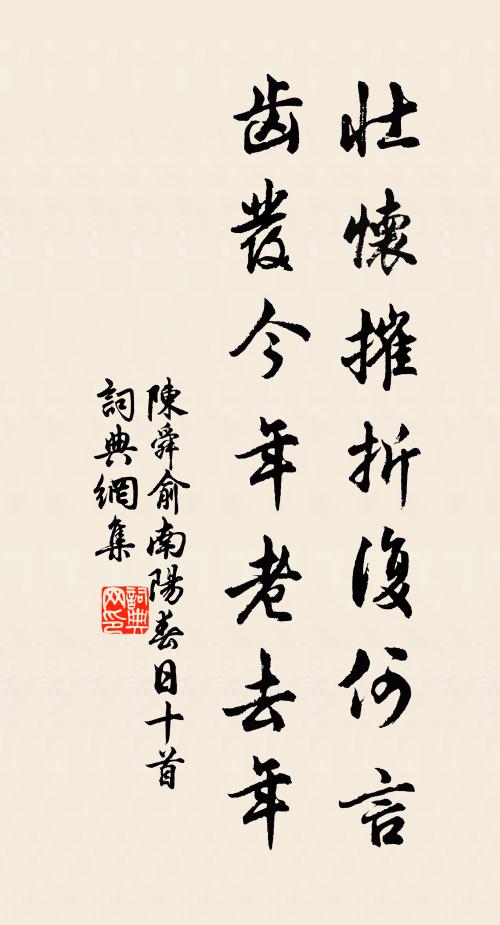 壮懷摧折復何言
齿發今年老去年
陳舜俞南陽春日十首
詞典網集
詞典
网印